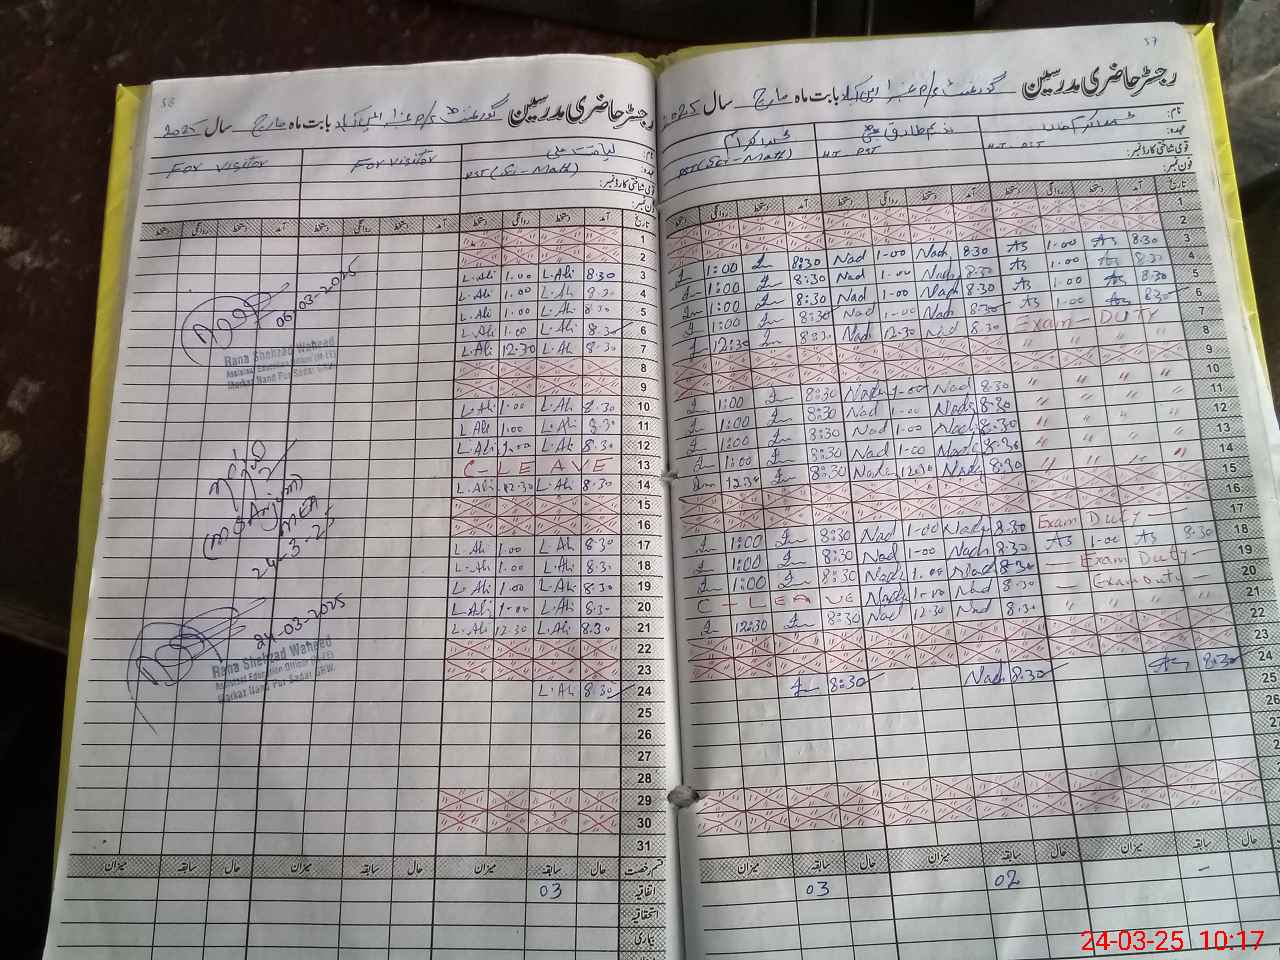 57
رجسٹر حاضری مدرسین
بابت ماہ مارچ سال 2025
نام:
عہدہ:
قومی شناختی کارڈ نمبر:
فون نمبر:
HT PST
HT PST
PST (Sci-Math)
تاریخ آمد دستخط روانگی دستخط آمد دستخط روانگی دستخط آمد دستخط روانگی دستخط
1
2
3 8.30 As 1.00 As 8.30 Nad 1-00 Nad 8:30 1:00
4 8.30 As 1.00 As 8.30 Nad 1-00 Nad 8:30 1:00
5 8.30 As 1.00 As 8.30 Nad 1-00 Nad 8:30 1:00
6 8.30 As 1.00 As 8.30 Nad 1-00 Nad 8:30 1:00
7 Exam - DUTY 8.30 Nad 12.30 Nad 8:30 12:30
8
9
10 " " " " 8.30 Nad 1-00 Nad 8:30 1:00
11 " " " " 8.30 Nad 1-00 Nad 8:30 1:00
12 " " " " 8.30 Nad 1.00 Nad 8:30 1:00
13 " " " " 8.30 Nad 1.00 Nad 8:30 1:00
14 " " " " 8.30 Nad 12.30 Nad 8:30 12.30
15
16
17 Exam Duty 8.30 Nad 1-00 Nad 8:30 1:00
18 8.30 As 1-00 As 8.30 Nad 1-00 Nad 8:30 1:00
19 Exam Duty 8.30 Nad 1.00 Nad 8:30 1:00
20 Exam Duty 8.30 Nad 1-00 Nad C - LEAVE
21 " " " " 8.30 Nad 12.30 Nad 8:30 12:30
22
23
24 8.30 As 8.30 Nad 8:30
25
26
حال سابقہ میزان حال سابقہ میزان حال سابقہ میزان
- 02 03
58
رجسٹر حاضری مدرسین
بابت ماہ مارچ سال 2025
نام: لیاقت علی
عہدہ: PST (Sci-Math)
قومی شناختی کارڈ نمبر:
فون نمبر:
FOR VISITOR
FOR VISITOR
تاریخ آمد دستخط روانگی دستخط آمد دستخط روانگی دستخط آمد دستخط روانگی دستخط
1
2
3 8.30 L.Ali 1.00 L.Ali
4 8.30 L.Ali 1.00 L.Ali
5 8.30 L.Ali 1.00 L.Ali
6 8.30 L.Ali 1.00 L.Ali
7 8.30 L.Ali 12.30 L.Ali
8
9
10 8.30 L.Ali 1.00 L.Ali
11 8.30 L.Ali 1.00 L.Ali
12 8.30 L.Ali 1.00 L.Ali
13 C - LEAVE
14 8.30 L.Ali 12.30 L.Ali
15
16
17 8.30 L.Ali 1.00 L.Ali
18 8.30 L.Ali 1.00 L.Ali
19 8.30 L.Ali 1.00 L.Ali
20 8.30 L.Ali 1.00 L.Ali
21 8.30 L.Ali 12.30 L.Ali
22
23
24 8.30 L.Ali
25
26
27
28
29
30
31
06-03-2025
Rana Shehzad Waheed
Assistant Education Officer (M-EE)
Markaz Nand Pur Sadar GRW.
MEA
24-3-25
24-03-2025
Rana Shehzad Waheed
Assistant Education Officer (M-EE)
Markaz Nand Pur Sadar GRW.
قسم رخصت حال سابقہ میزان حال سابقہ میزان حال سابقہ میزان
اتفاقیہ 03
استحقاقیہ
بیماری
24-03-25 10:17